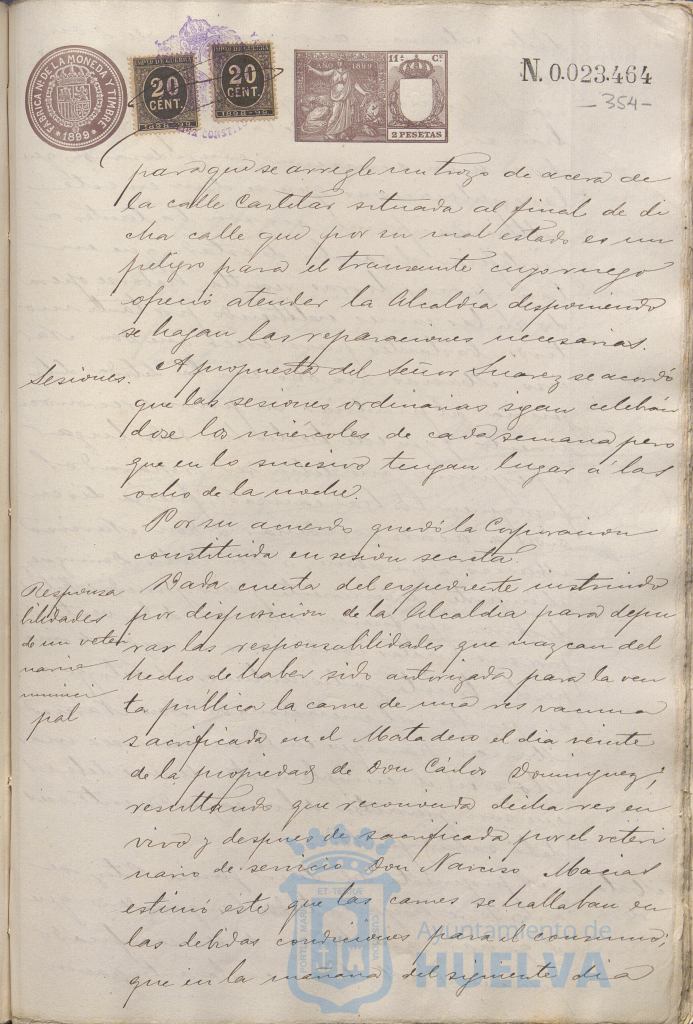 FÁBRICA NL. DE LA MONEDA Y TIMBRE
* 1899 *
20
CENT.
1898-99
20
CENT.
1898-99
AÑO 1899
11ª Cᵉ
2 PESETAS
N. 0.023.464
-354-
para que se arregle un trozo de acera de
la calle Castelar situada al final de di
cha calle que por su mal estado es un
peligro para el transeunte cuyo ruego
ofreció atender la Alcaldía disponiendo
se hagan las reparaciones necesarias.
Sesiones.
A propuesta del Señor Suarez se acordó
que las sesiones ordinarias sigan celebrán
dose los miércoles de cada semana pero
que en lo sucesivo tengan lugar á las
ocho de la noche.
Por su acuerdo quedó la Corporacion
constituida en sesion secreta.
Responsa
bilidades
de un veteri
nario
munici
pal
Dada cuenta del expediente instruido
por disposicion de la Alcaldia para depu
rar las responsabilidades que nazcan del
hecho de haber sido autorizada para la ven
ta pública la carne de una res vacuna
sacrificada en el Matadero el dia veinte
de la propiedad de Don Cárlos Dominguez;
resultando que reconocida dicha res en
vivo y despues de sacrificada por el veteri
nario de servicio Don Narciso Macias
estimó éste que las carnes se hallaban en
las debidas condiciones para el consumo;
que en la mañana del siguiente dia
Ayuntamiento de
HUELVA